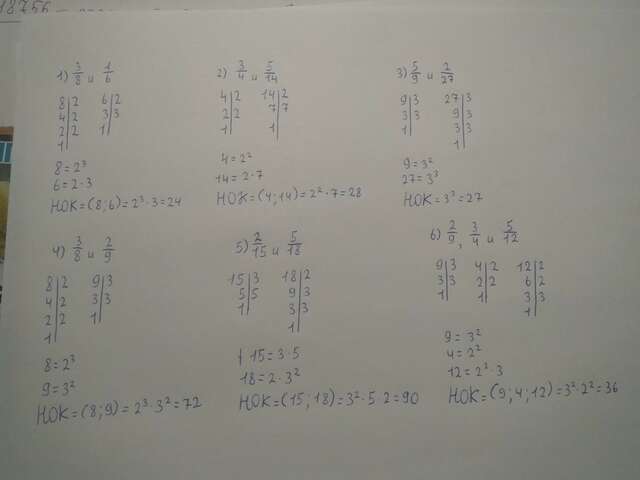 18756
1) 3/8 и 1/6
8|2 6|2
4|2 3|3
2|2 1|
1|
8=2³
6=2·3
НОК=(8;6)=2³·3=24
2) 3/4 и 5/14
4|2 14|2
2|2 7|7
1| 1|
4=2²
14=2·7
НОК=(4;14)=2²·7=28
3) 5/9 и 2/27
9|3 27|3
3|3 9|3
1| 3|3
1|
9=3²
27=3³
НОК=3³=27
4) 3/8 и 2/9
8|2 9|3
4|2 3|3
2|2 1|
1|
8=2³
9=3²
НОК=(8;9)=2³·3²=72
5) 2/15 и 5/18
15|3 18|2
5|5 9|3
1| 3|3
1|
15=3·5
18=2·3²
НОК=(15;18)=3²·5·2=90
6) 2/9, 3/4 и 5/12
9|3 4|2 12|2
3|3 2|2 6|2
1| 1| 3|3
1|
9=3²
4=2²
12=2²·3
НОК=(9;4;12)=3²·2²=36